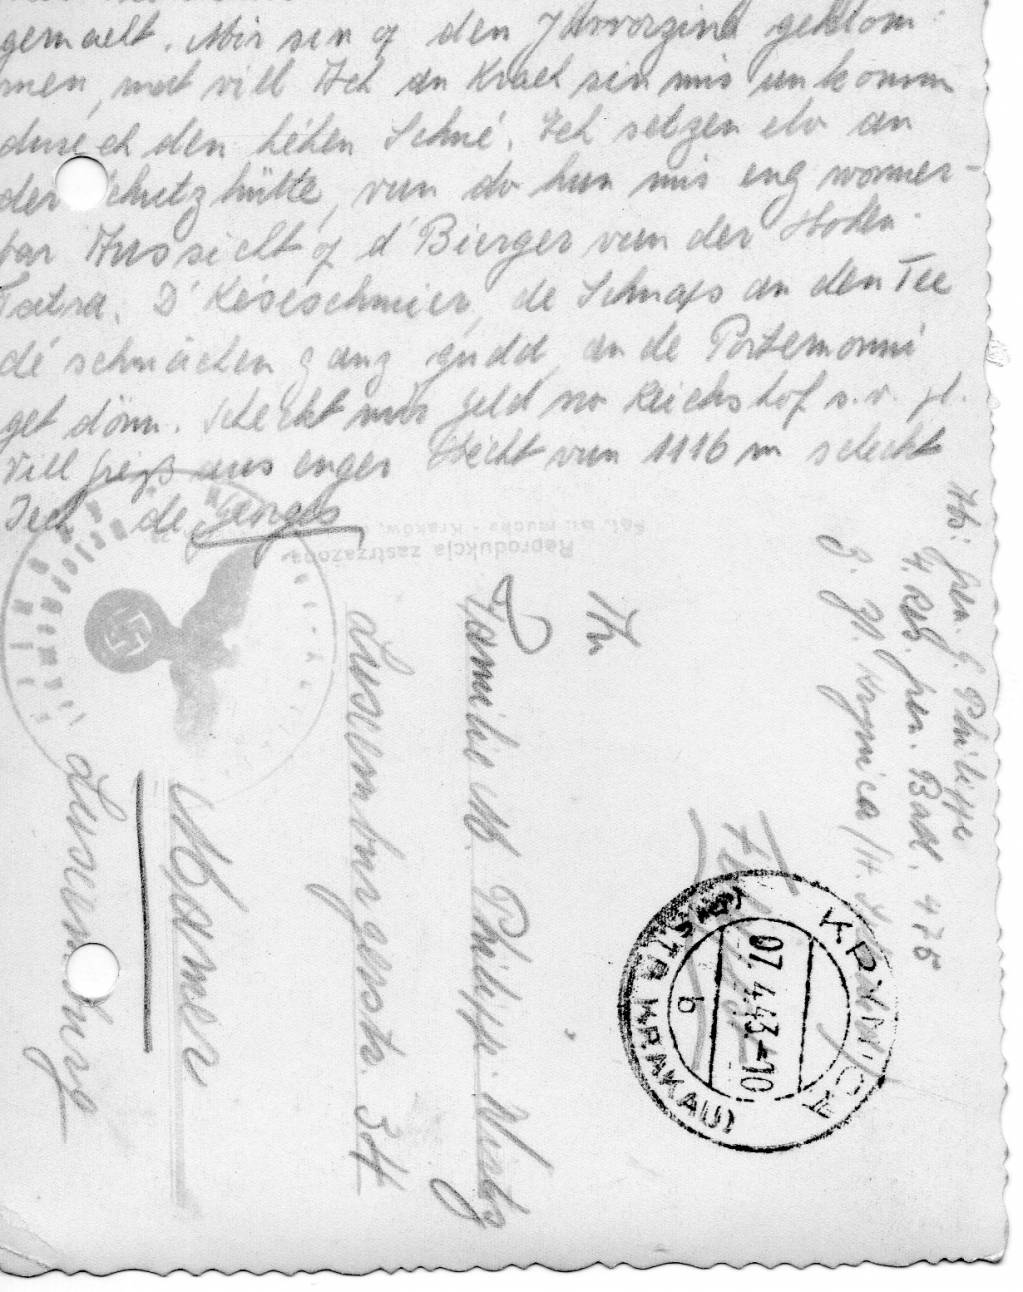 gemaelt. Mir sin op den Jaworzina geklom-
men, mat vill Ach an Krach sin mir un komm
durech den héhen Schné. Ech setzen elo an
der Schutzhütte, vun do hun mir eng wonner-
bar Aussicht op d'Bierger vun der Hohen
Tatra. D'Késeschmier, de Schnaps an den Tee
dé schmáchen ganz gudd, an de Portemonni
get dönn. Schéckt mir Geld no Reichshof s.v. pl.
Vill Greiss aus enger Hécht vun 1116 m schéckt
Iech de Georges
Reprodukcja zastrzeżona
Kraków
Abs: Gren. G. Philippe
4. Res. Gren. Batl. 475
Krynica
An
Familie M. Philippe-
Luxemburgerstr. 34
Mamer
Luxemburg
KRYNICA
(DISTR KRAKAU)
07.4.43-10
b